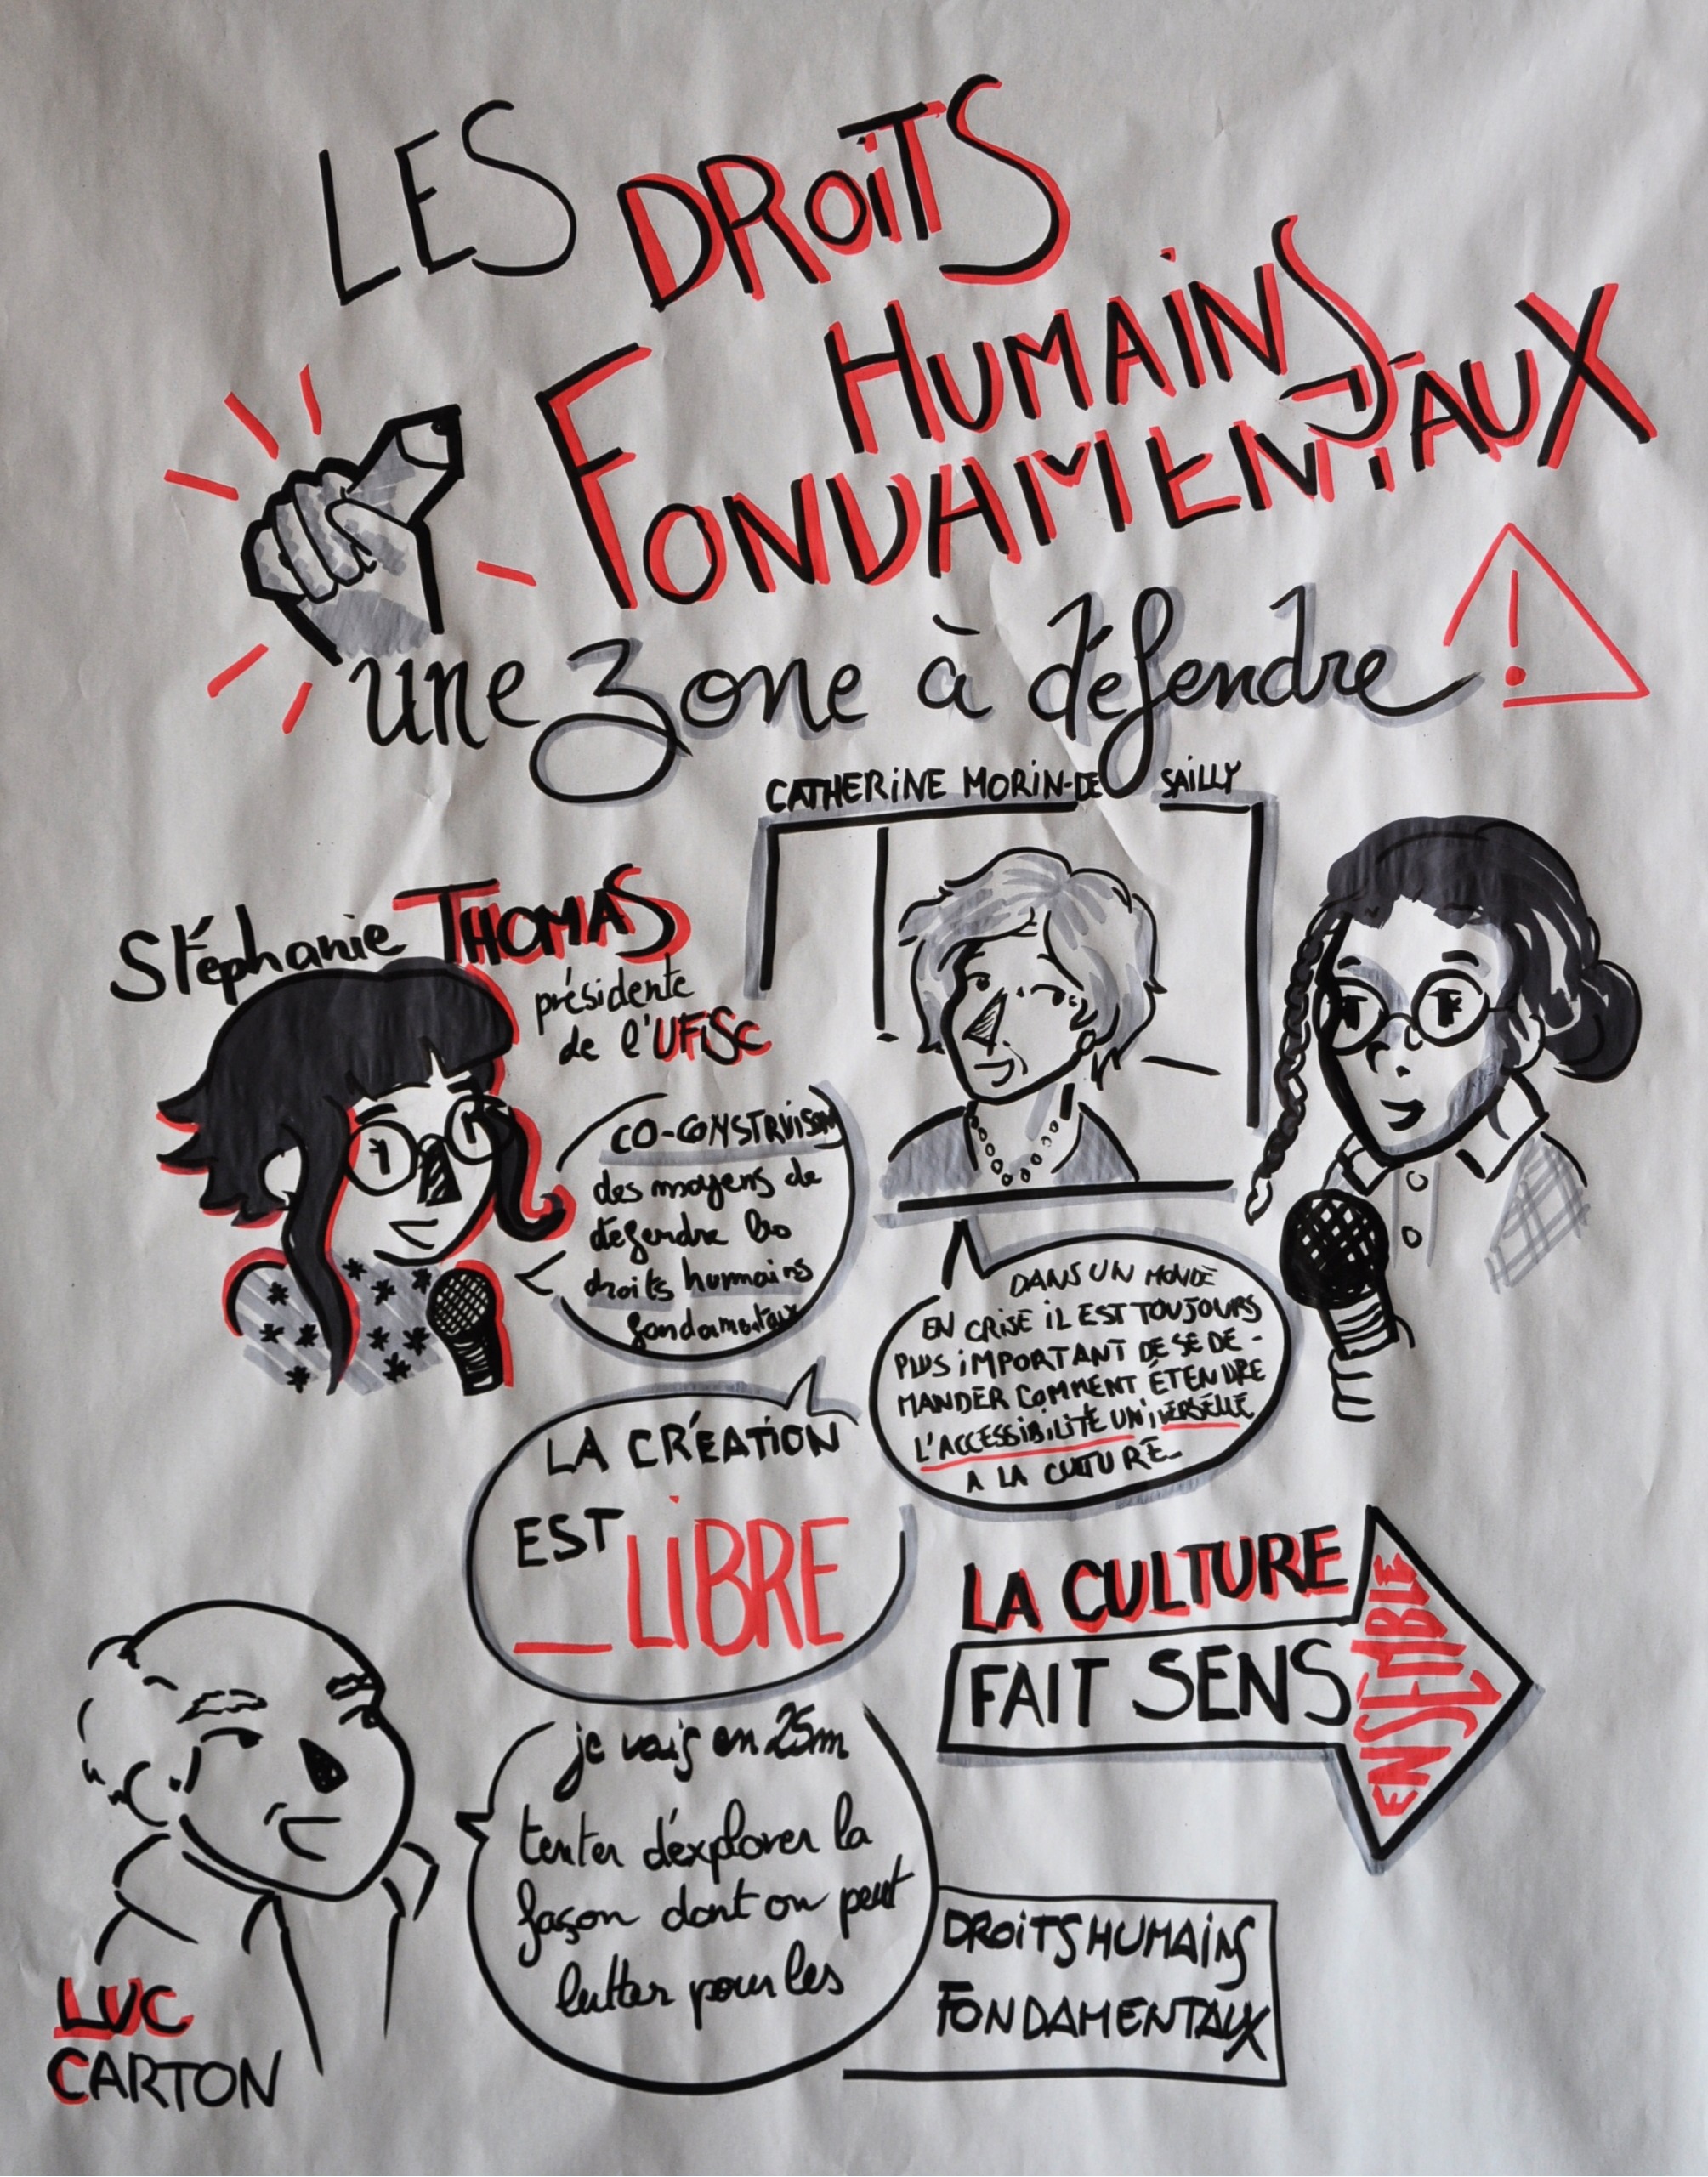 LES DROiTS
HUMAiNS
FONDAMENTAUX
une zone à défendre
!
CATHERiNE MORiN-DE SAiLLY
Stéphanie THOMAS
présidente
de l'UFiSC
CO-CONSTRUiSONS
des moyens de
défendre les
droits humains
fondamentaux
DANS UN MONDE
EN CRISE iL EST TOUJOURS
PLUS iMPORTANT DE SE DE-
MANDER COMMENT ÉTENDRE
L'ACCESSiBiLiTÉ UNiVERSELLE
A LA CULTURE_
LA CRÉATiON
EST LiBRE
LA CULTURE
FAIT SENS
ENSEMBLE
je vais en 25m
tenter d'explorer la
façon dont on peut
lutter pour les
DROiTS HUMAiNS
FONDAMENTAUX
LUC
CARTON